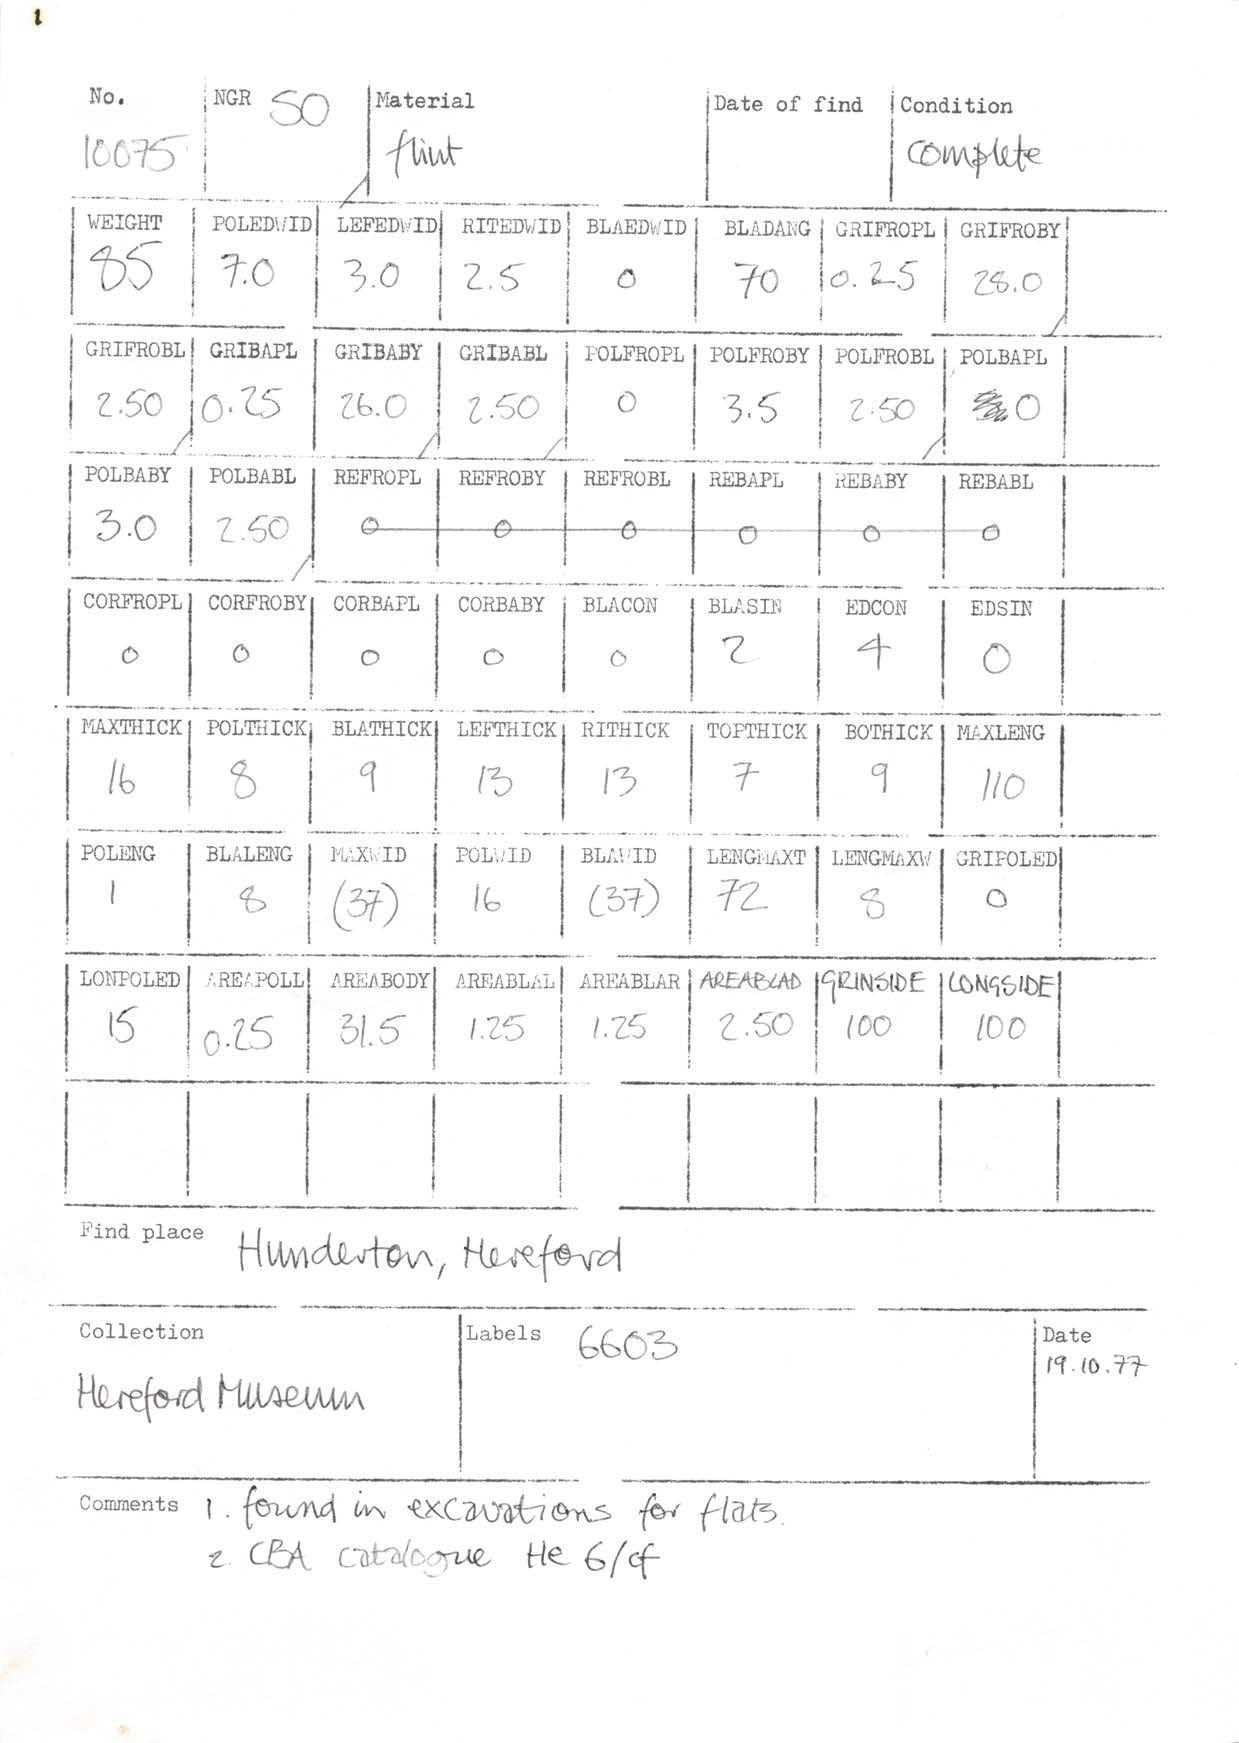 1
No. NGR SO Material Date of find Condition
10075 flint complete
WEIGHT POLEDWID LEFEDWID RITEDWID BLAEDWID BLADANG GRIFROPL GRIFROBY
85 7.0 3.0 2.5 0 70 0.25 28.0
GRIFROBL GRIBAPL GRIBABY GRIBABL POLFROPL POLFROBY POLFROBL POLBAPL
2.50 0.25 26.0 2.50 0 3.5 2.50 0
POLBABY POLBABL REFROPL REFROBY REFROBL REBAPL REBABY REBABL
3.0 2.50 0 0 0 0 0 0
CORFROPL CORFROBY CORBAPL CORBABY BLACON BLASIN EDCON EDSIN
0 0 0 0 0 2 4 0
MAXTHICK POLTHICK BLATHICK LEFTHICK RITHICK TOPTHICK BOTHICK MAXLENG
16 8 9 13 13 7 9 110
POLENG BLALENG MAXWID POLWID BLAWID LENGMAXT LENGMAXW GRIPOLED
1 8 (37) 16 (37) 72 8 0
LONPOLED AREAPOLL AREABODY AREABLAL AREABLAR AREABLAD GRINSIDE LONGSIDE
15 0.25 31.5 1.25 1.25 2.50 100 100
Find place Hunderton, Hereford
Collection Labels 6603 Date
Hereford Museum 19.10.77
Comments 1. found in excavations for flats.
2. CBA catalogue He 6/cf